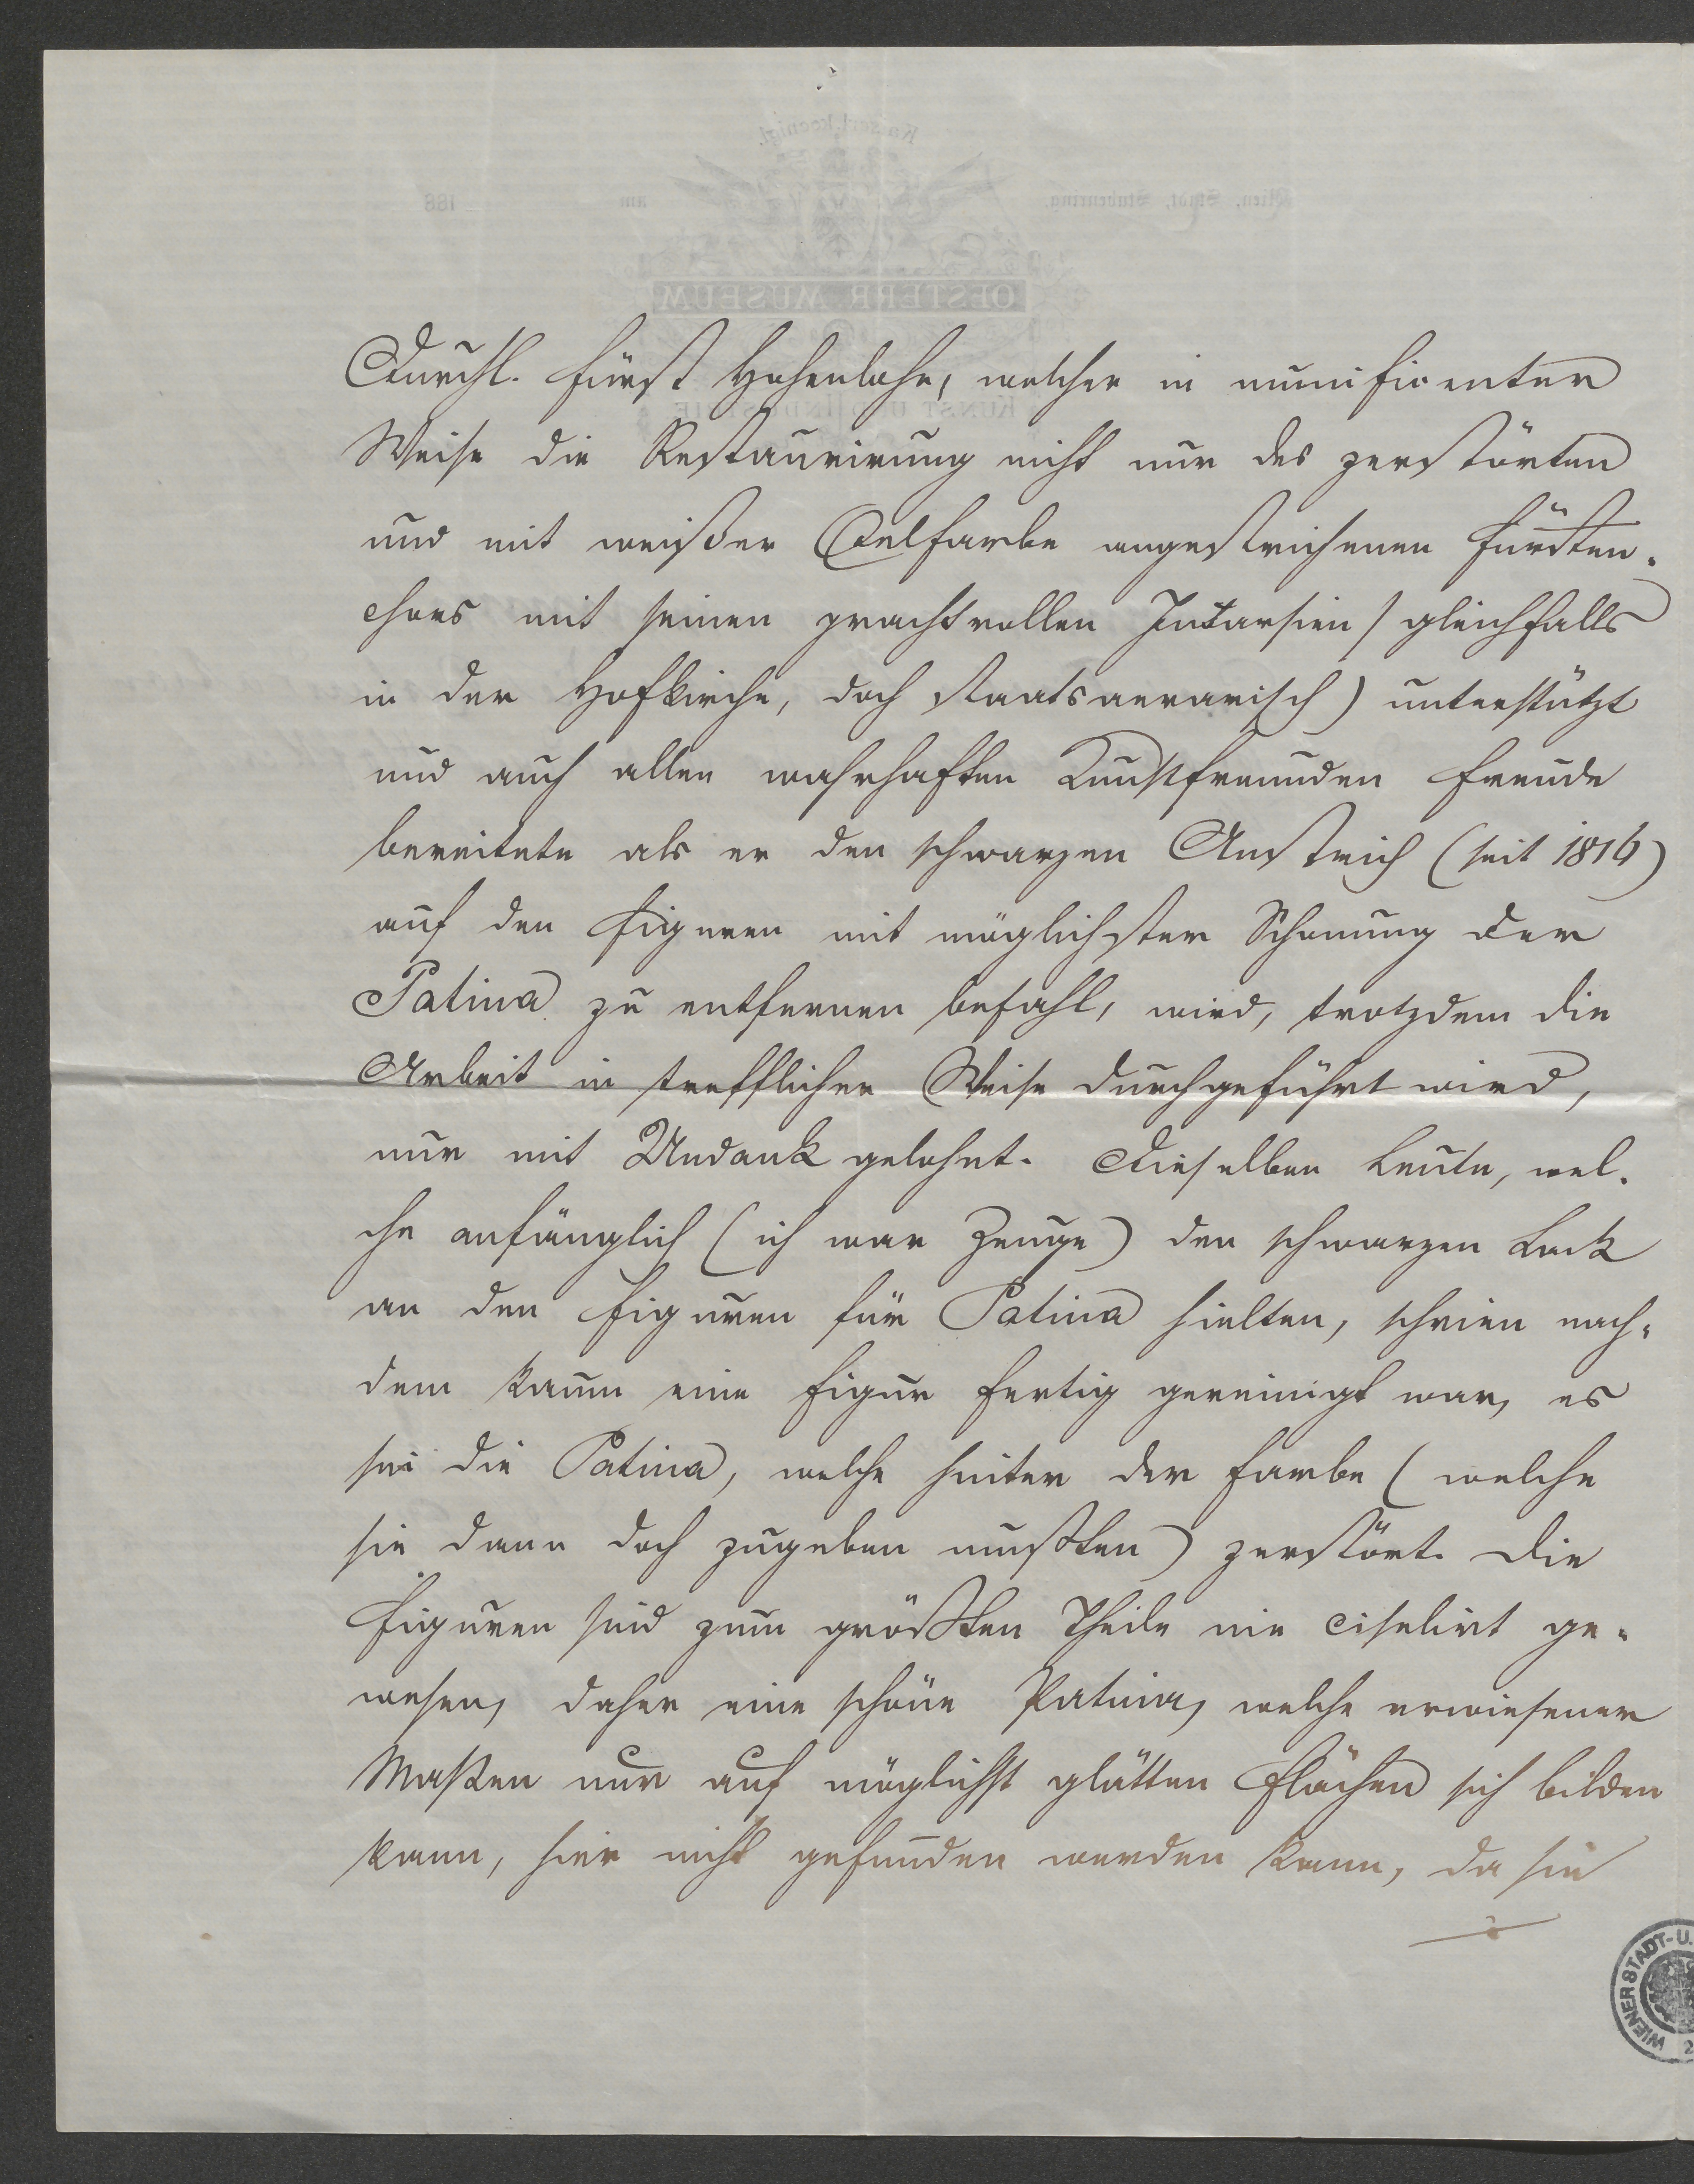 Durchl. Fürst Hohenlohe, welcher in munificenter
Weise die Restaurirung nicht nur des zerstörten
und mit weißer Oelfarbe angestrichenen Fürsten-
chores mit seinen prachtvollen Intarsien (gleichfalls
in der Hofkirche, doch staatsaerarisch) unterstützt
und auch allen wahrhaften Kunstfreunden Freude
bereitete als er den schwarzen Anstrich (seit 1816)
auf den Figuren mit möglichster Schonung der
Patina zu entfernen befahl, wird, trotzdem die
Arbeit in trefflicher Weise durchgeführt wird,
nur mit Undank gelohnt. Dieselben Leute, wel-
che anfänglich (ich war Zeuge) den schwarzen Lack
an den Figuren für Patina hielten, schrien nach-
dem kaum eine Figur fertig gereinigt war, es
sei die Patina, welche hinter der Farbe (welche
sie dann doch zugeben mußten) zerstört. Die
Figuren sind zum größten Theile nie ciselirt ge-
wesen, daher eine schöne Patina, welche erwiesener
Maßen nur auf möglichst glatten Flächen sich bilden
kann, hier nicht gefunden werden kann, da sie
WIENER STADT-U.
OESTERR. MUSEUM
KUNST UND INDUSTRIE
Kaiserl. koenigl.
Wien, Stadt, Stubenring, am 188